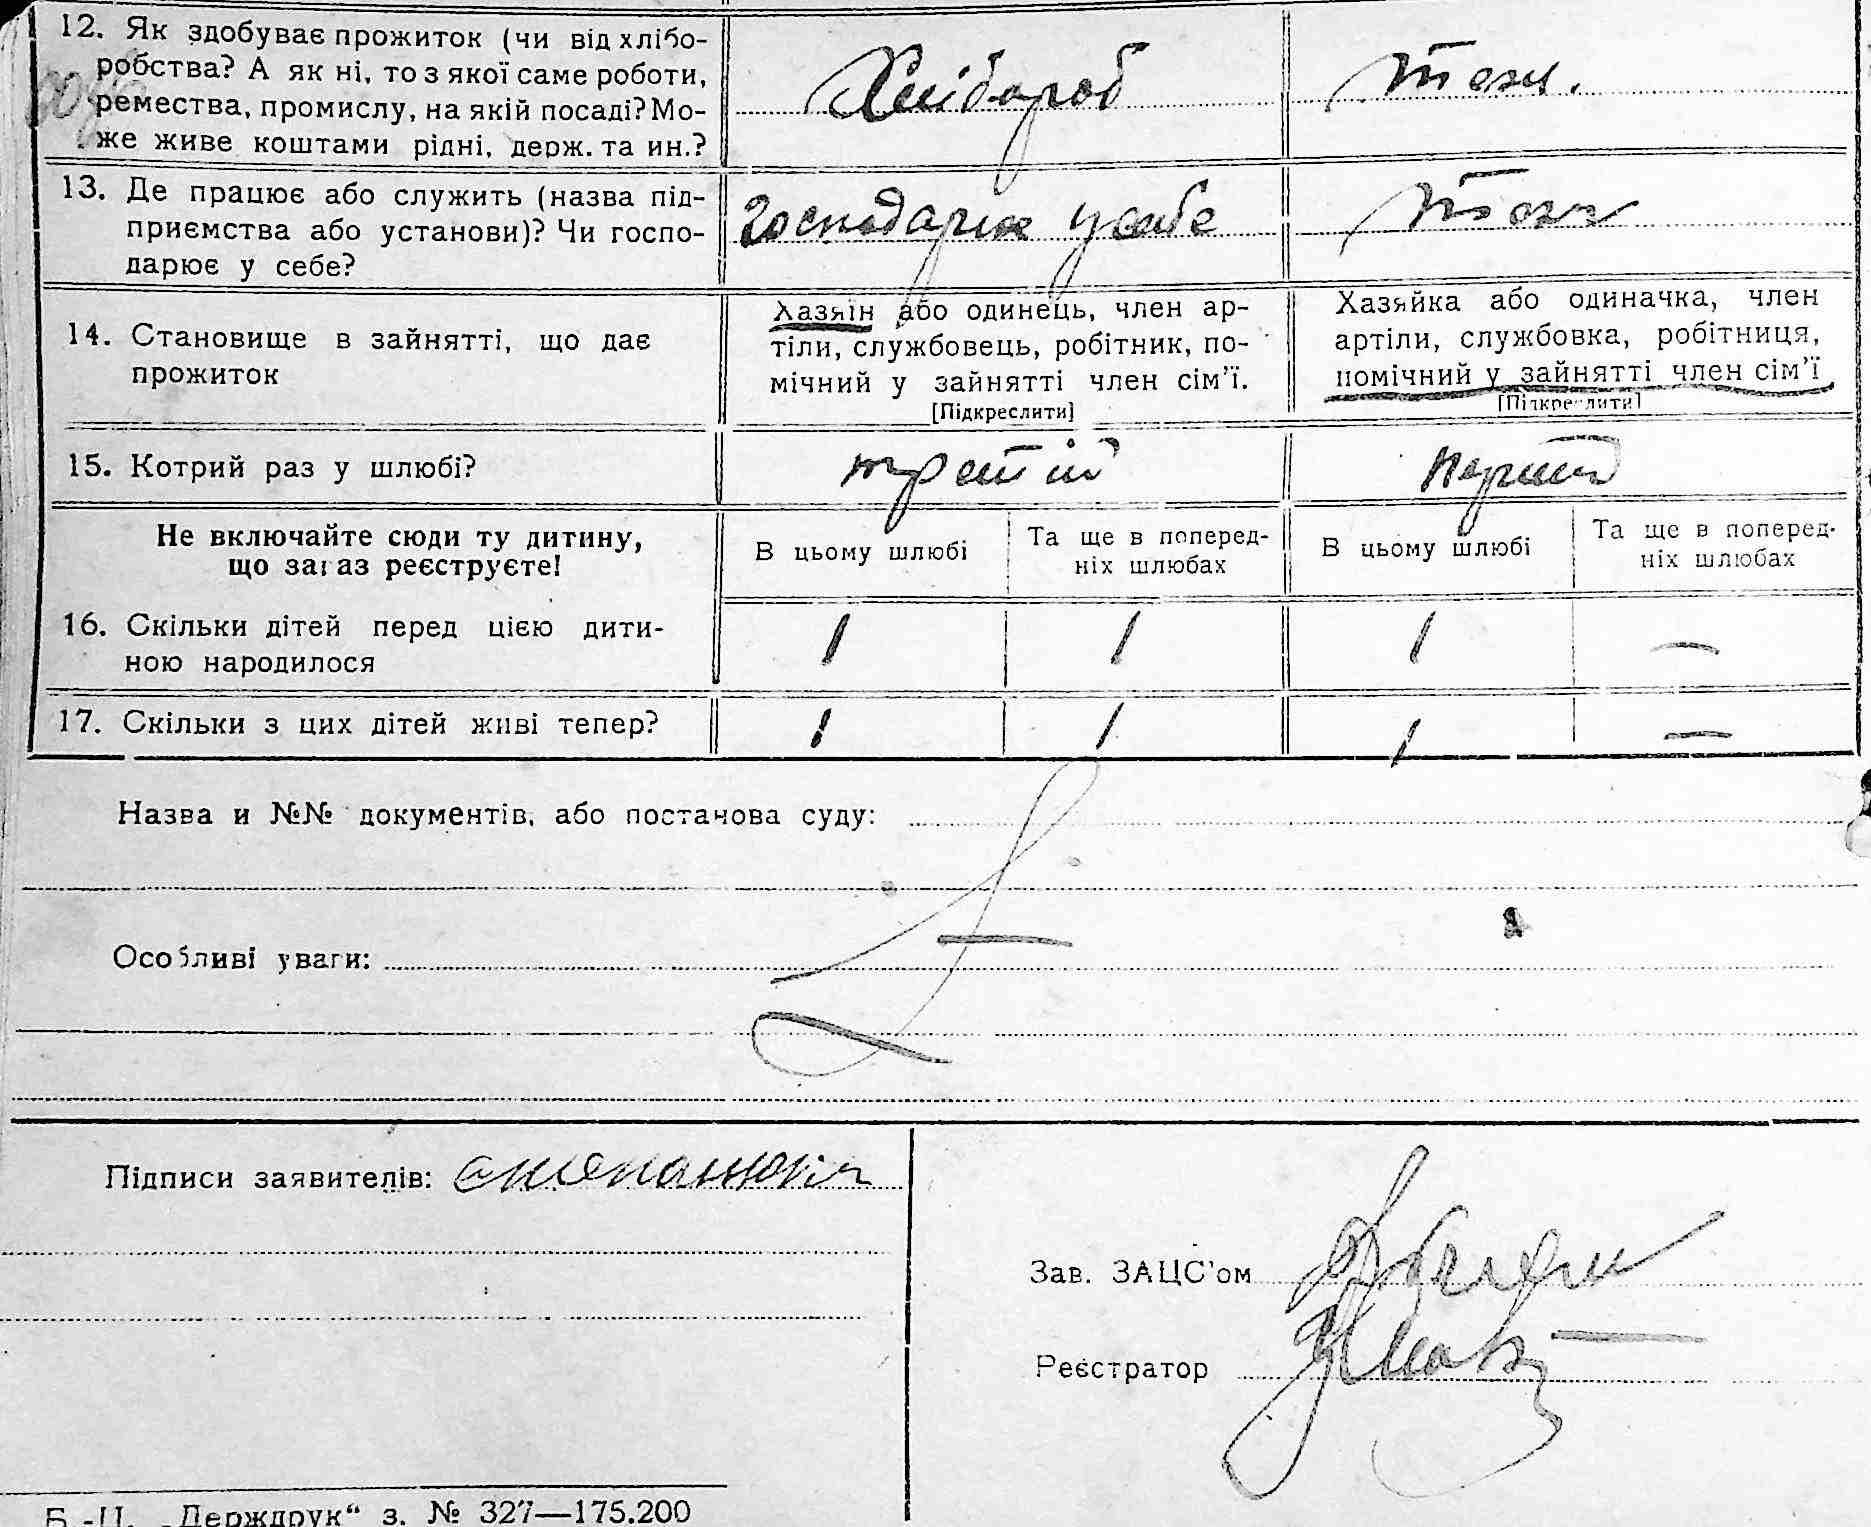 12. Як здобуває прожиток (чи від хлібо-
робства? А як ні, то з якої саме роботи,
ремества, промислу, на якій посаді? Мо-
же живе коштами рідні, держ. та ин.?
Хлібороб
тож.
13. Де працює або служить (назва під-
приємства або установи)? Чи госпо-
дарює у себе?
господарює у себе
тож
14. Становище в зайнятті, що дає
прожиток
Хазяїн або одинець, член ар-
тіли, службовець, робітник, по-
мічний у зайнятті член сім'ї.
[Підкреслити]
Хазяйка або одиначка, член
артіли, службовка, робітниця,
помічний у зайнятті член сім'ї
[Підкреслити]
15. Котрий раз у шлюбі?
третій
перший
Не включайте сюди ту дитину,
що зараз реєструєте!
В цьому шлюбі
Та ще в поперед-
ніх шлюбах
В цьому шлюбі
Та ще в поперед-
ніх шлюбах
16. Скільки дітей перед цією дити-
ною народилося
1 1 1 —
17. Скільки з цих дітей живі тепер?
1 1 1 —
Назва и №№ документів, або постанова суду:
Особливі уваги:
Підписи заявителів:
Зав. ЗАЦС'ом
Реєстратор
Б.-Ц. „Держдрук“ з. № 327—175.200